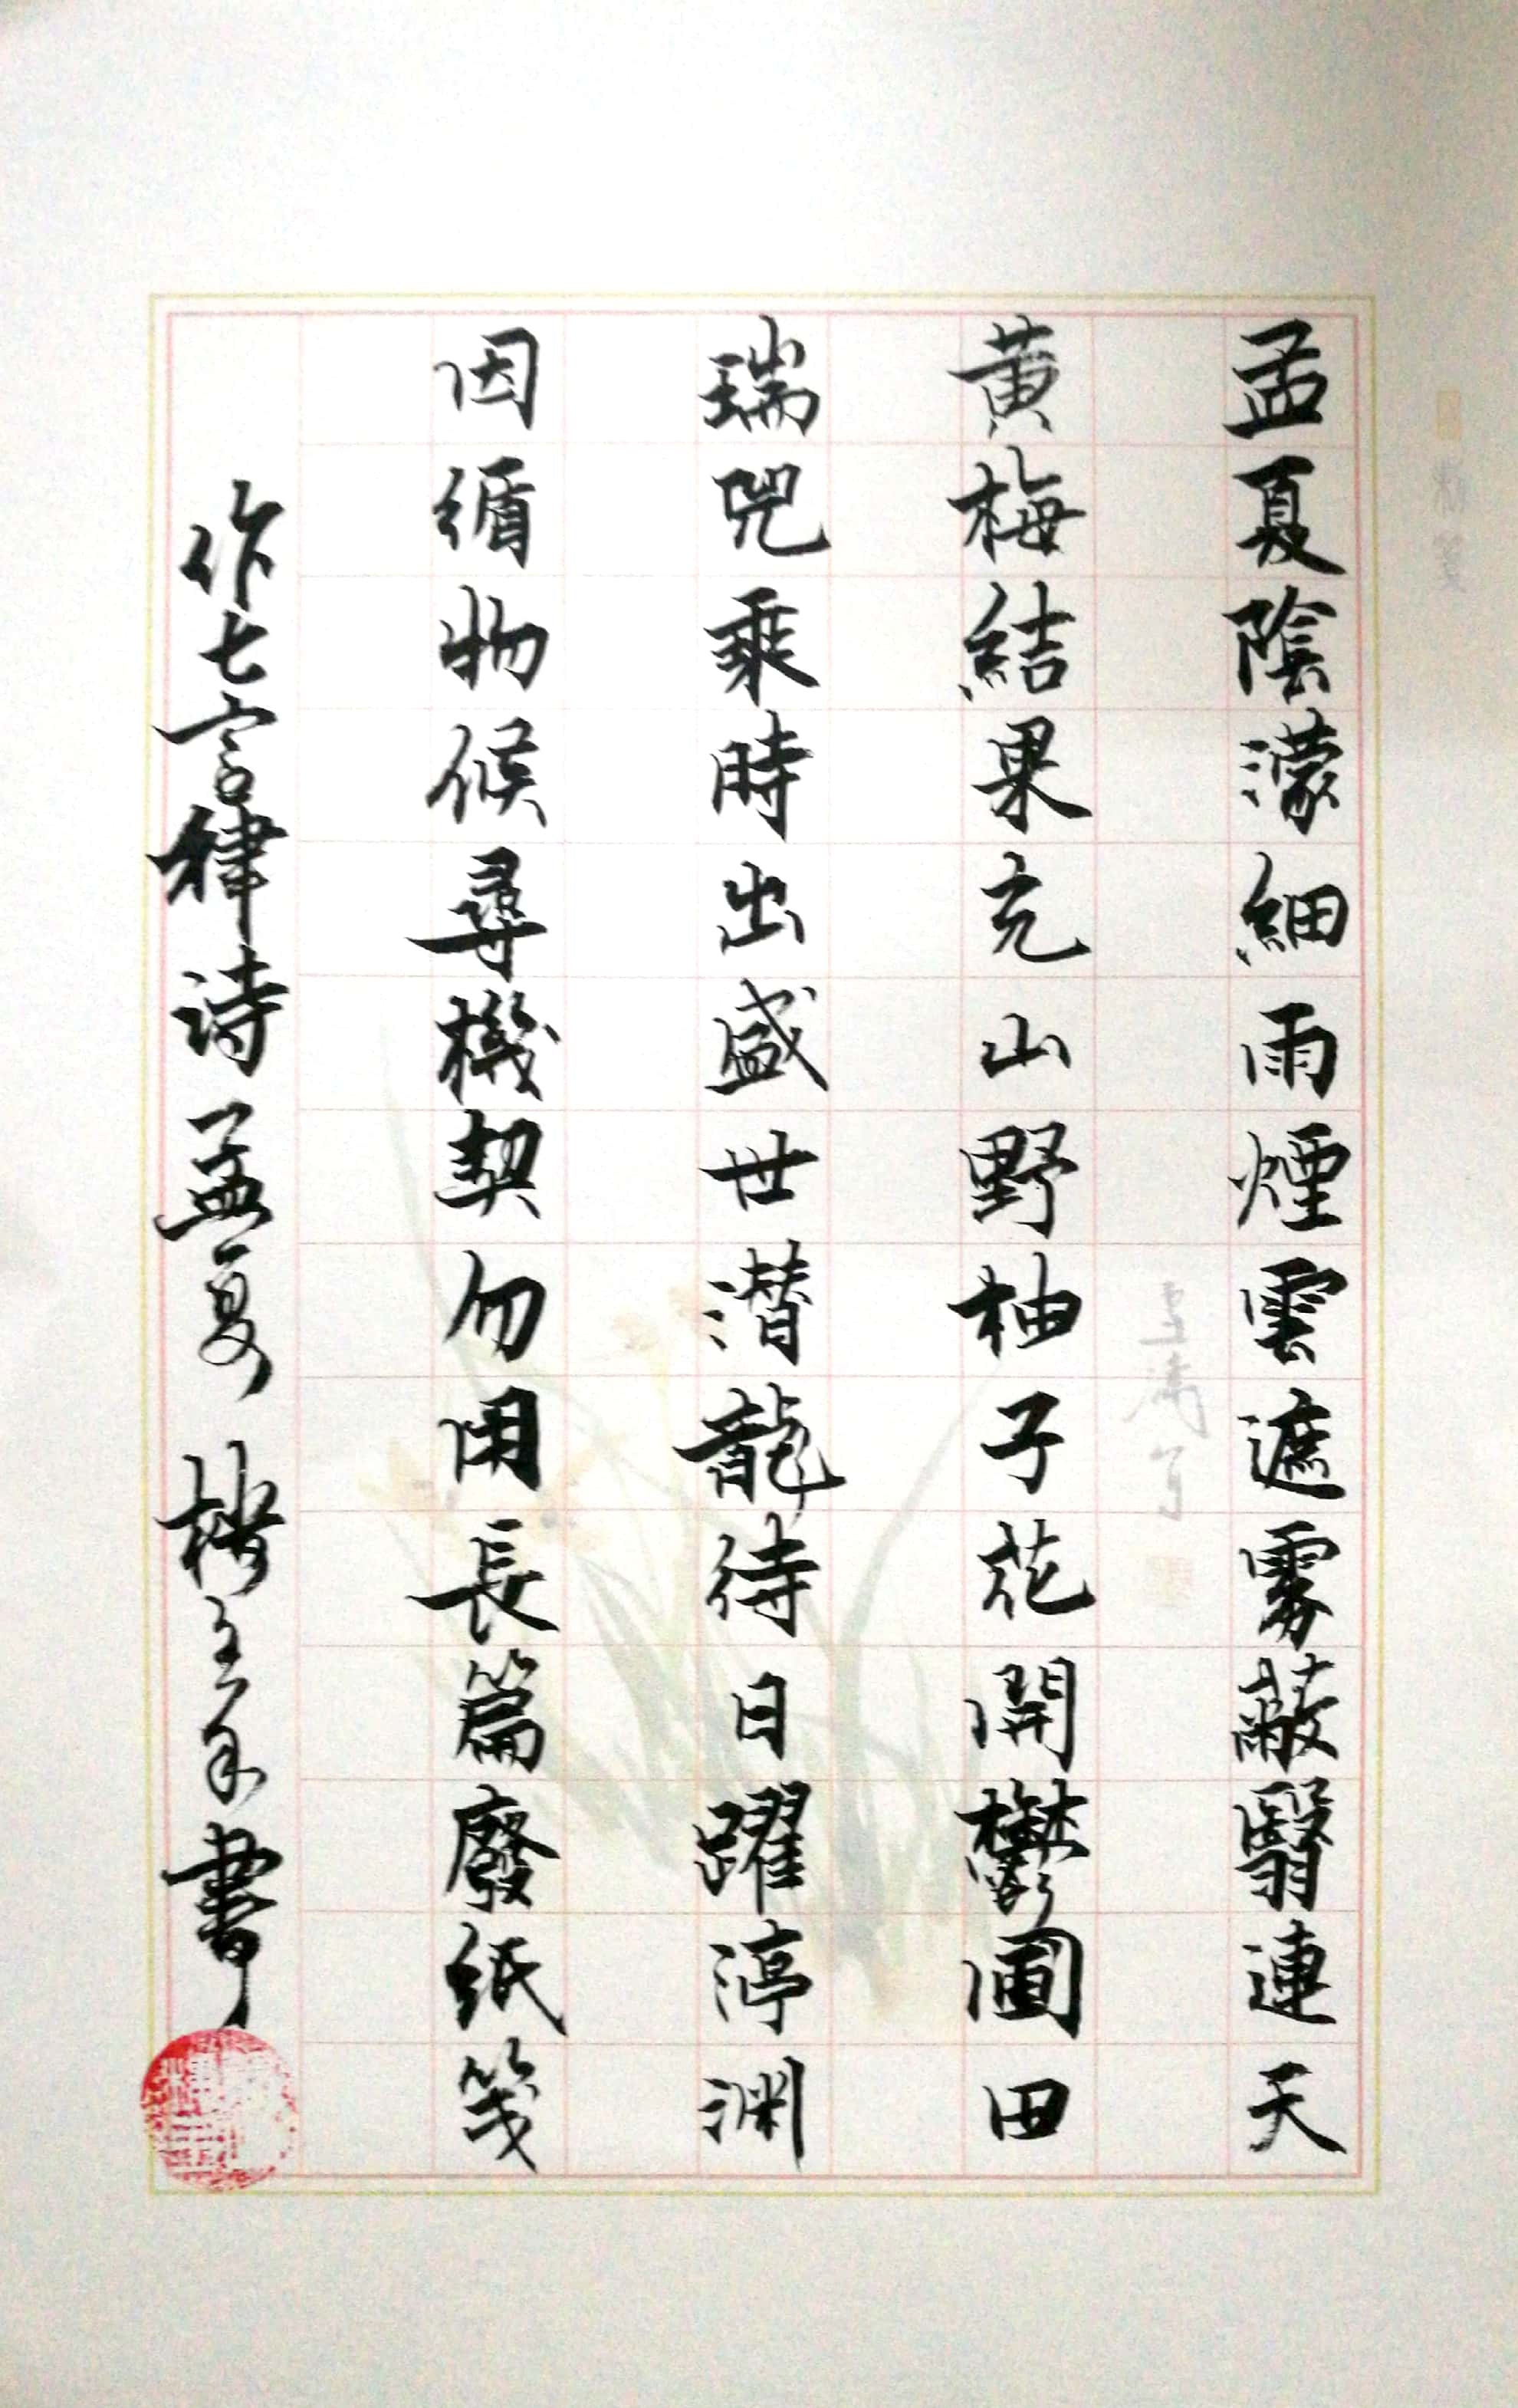 孟夏陰濛細雨煙雲遮霧蔽翳連天
黄梅結果充山野柚子花開鬱圃田
瑞兕乘時出盛世潜龍待日躍渟渊
因循物候尋機契勿用長篇廢紙笺
作七言律诗孟夏 書